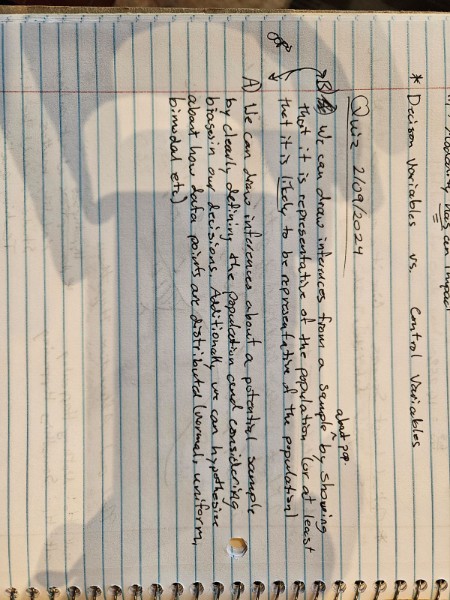 has an impact
* Decison Variables vs. Control Variables
Quiz 2/09/2024
about pop.
B) We can draw inferences from a sample by showing
that it is representative of the population (or at least
that it is likely to be representative of the population)
A) We can draw inferences about a potential sample
by clearly defining the population and considering
biases in our decisions. Additionally we can hypothesize
about how data points are distributed (normal, uniform,
bimodal etc.)